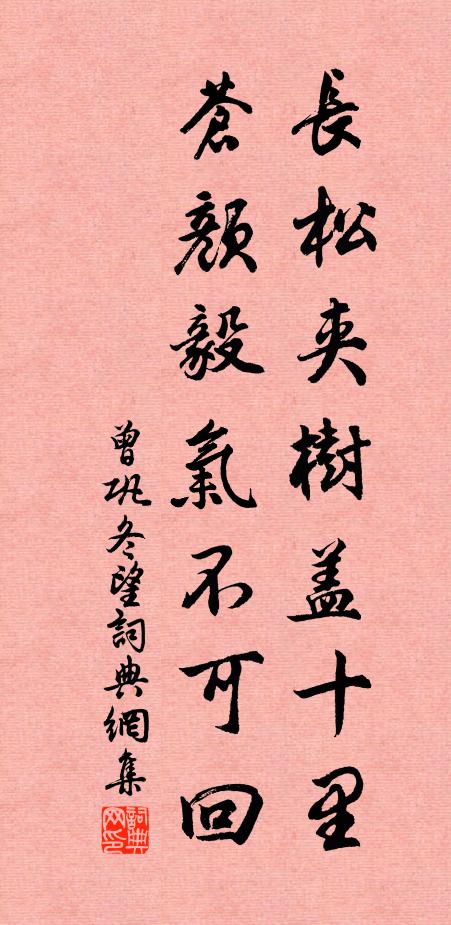 長松夾樹蓋十里
蒼顏毅氣不可回
曾巩冬望詞典網集
詞典网印